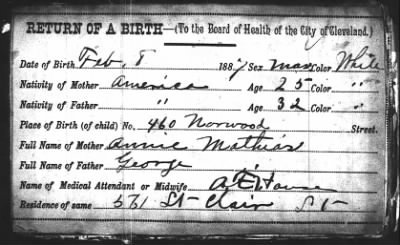 RETURN OF A BIRTH—(To the Board of Health of the City of Cleveland.)
Date of Birth Feb. 8 1887 Sex Male Color White
Nativity of Mother America Age 25 Color "
Nativity of Father " Age 32 Color "
Place of Birth (of child) No. 460 Norwood Street.
Full Name of Mother Annie Mathias
Full Name of Father George
Name of Medical Attendant or Midwife
Residence of same 561 St Clair St